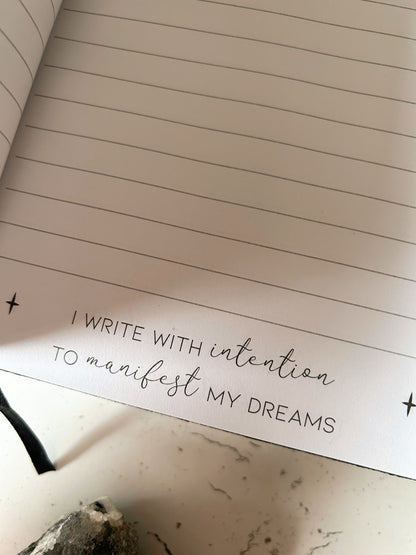 I WRITE WITH intention
TO manifest MY DREAMS